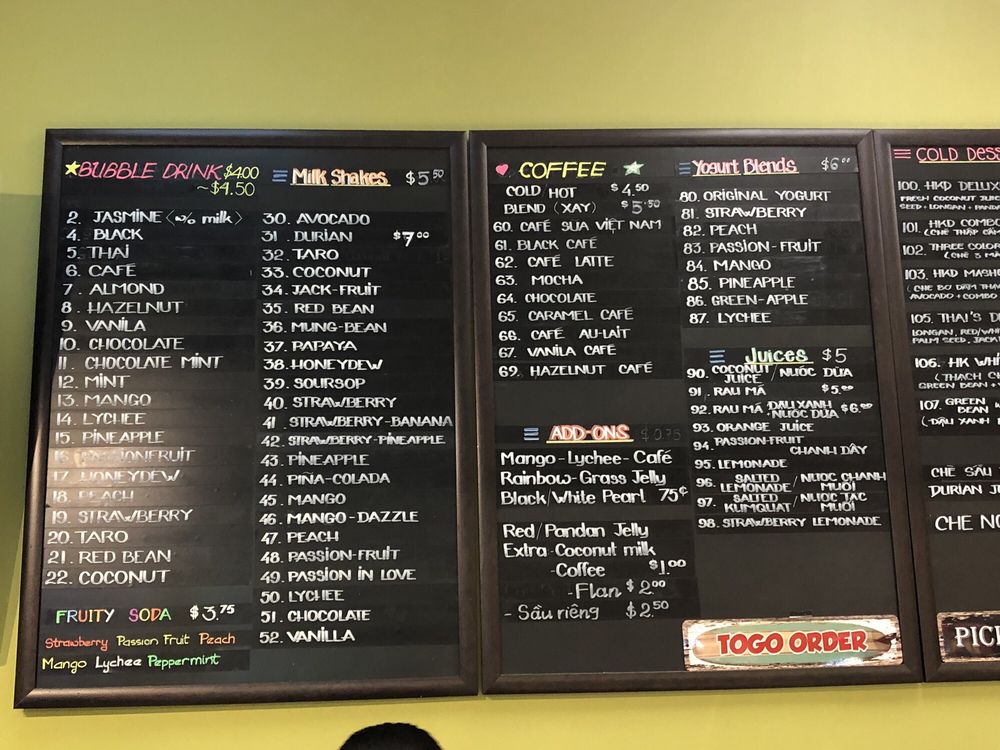 BUBBLE DRINK $4.00
~$4.50
2. JASMINE <w/o milk>
4. BLACK
5. THAI
6. CAFÉ
7. ALMOND
8. HAZELNUT
9. VANILA
10. CHOCOLATE
11. CHOCOLATE MINT
12. MINT
13. MANGO
14. LYCHEE
15. PINEAPPLE
16. PASSIONFRUIT
17. HONEYDEW
18. PEACH
19. STRAWBERRY
20. TARO
21. RED BEAN
22. COCONUT
FRUITY SODA $3.75
Strawberry Passion Fruit Peach
Mango Lychee Peppermint
Milk Shakes $5.50
30. AVOCADO
31. DURIAN $7.00
32. TARO
33. COCONUT
34. JACK-FRUIT
35. RED BEAN
36. MUNG-BEAN
37. PAPAYA
38. HONEYDEW
39. SOURSOP
40. STRAWBERRY
41. STRAWBERRY-BANANA
42. STRAWBERRY-PINEAPPLE
43. PINEAPPLE
44. PINA-COLADA
45. MANGO
46. MANGO-DAZZLE
47. PEACH
48. PASSION-FRUIT
49. PASSION IN LOVE
50. LYCHEE
51. CHOCOLATE
52. VANILLA
COFFEE
COLD HOT $4.50
BLEND (XAY) $5.50
60. CAFÉ SUA VIỆT NAM
61. BLACK CAFÉ
62. CAFÉ LATTE
63. MOCHA
64. CHOCOLATE
65. CARAMEL CAFÉ
66. CAFÉ AU-LAIT
67. VANILA CAFÉ
69. HAZELNUT CAFÉ
ADD-ONS $0.75
Mango-Lychee-Café
Rainbow-Grass Jelly
Black/White Pearl 75¢
Red/Pandan Jelly
Extra-Coconut milk
-Coffee $1.00
-Flan $2.00
- Sầu riêng $2.50
Yogurt Blends $6.00
80. ORIGINAL YOGURT
81. STRAWBERRY
82. PEACH
83. PASSION-FRUIT
84. MANGO
85. PINEAPPLE
86. GREEN-APPLE
87. LYCHEE
Juices $5
90. COCONUT JUICE / NƯỚC DỪA
91. RAU MÁ $5.00
92. RAU MÁ ĐẬU XANH / NƯỚC DỪA $6.00
93. ORANGE JUICE
94. PASSION-FRUIT
CHANH DÂY
95. LEMONADE
96. SALTED LEMONADE / NƯỚC CHANH MUỐI
97. SALTED KUMQUAT / NƯỚC TẮC MUỐI
98. STRAWBERRY LEMONADE
TOGO ORDER
COLD DESS
100. HKD DELUX
FRESH COCONUT JUICE
SEED-LONGAN-PANDA
101. HKD COMBO
(CHÈ THẬP CẨM
102. THREE COLOR
(CHÈ 3 MÀ
103. HKD MASH
AVOCADO+COMBO
105. THAI'S D
LONGAN, RED/WH
PALM SEED, JACK
106. HK WHI
(THẠCH
GREEN BEAN +
107. GREEN
BEAN
(ĐẬU XANH
CHÈ SẦU
DURIAN J
CHE NO
PICK